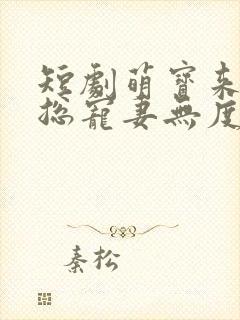 短劇萌寶來
總寵妻無度
秦松